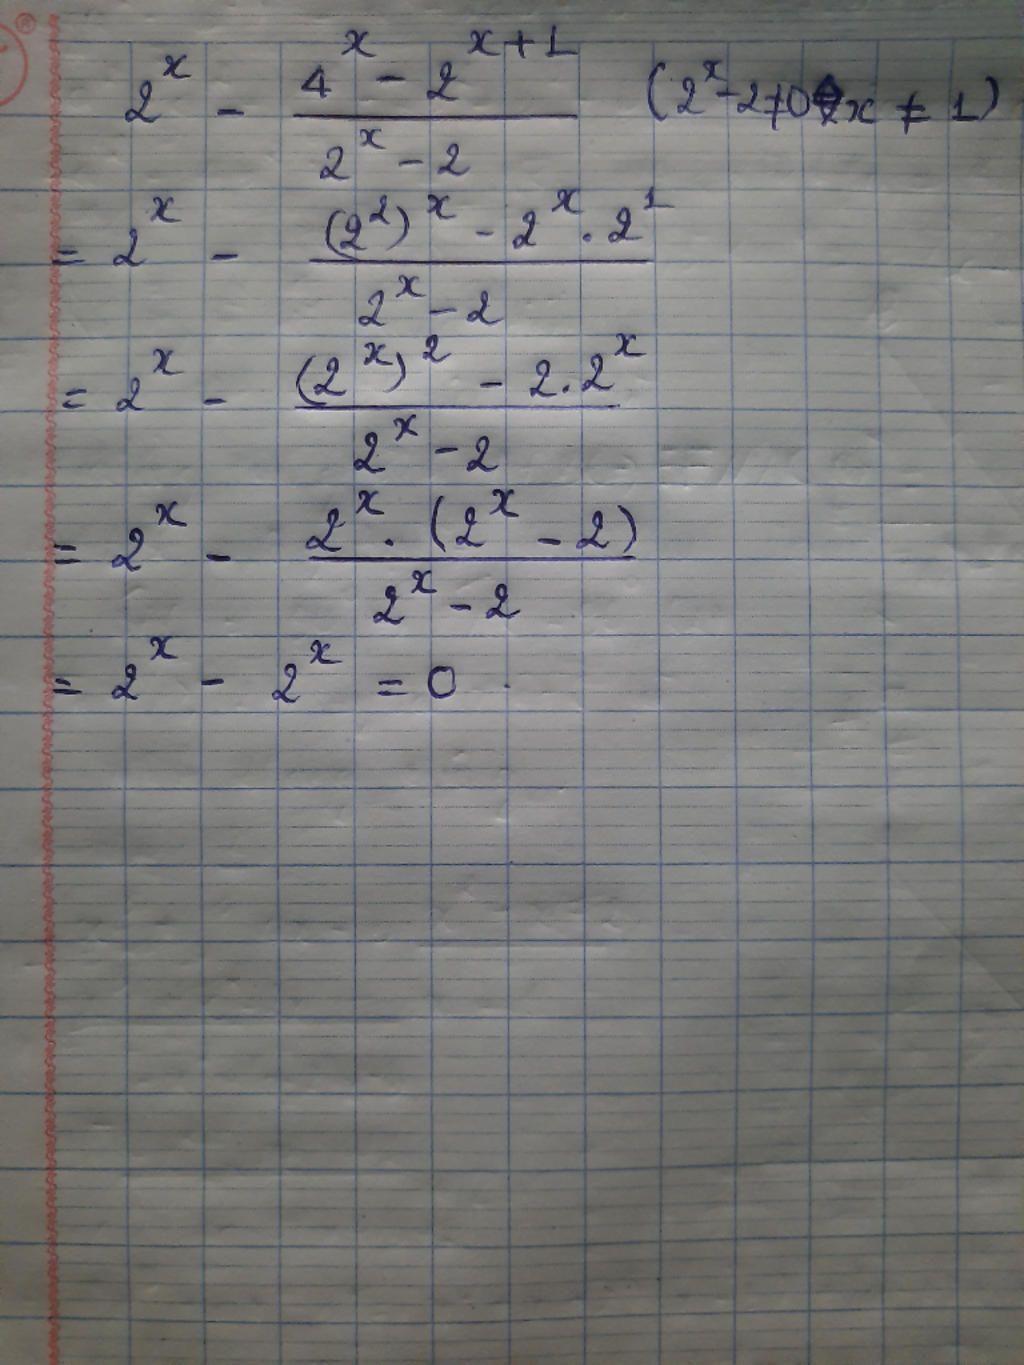 2^x - (4^x - 2^(x+1)) / (2^x - 2) (2^x - 2 ≠ 0 x ≠ 1)
= 2^x - ((2^2)^x - 2^x . 2^1) / (2^x - 2)
= 2^x - ((2^x)^2 - 2 . 2^x) / (2^x - 2)
= 2^x - (2^x . (2^x - 2)) / (2^x - 2)
= 2^x - 2^x = 0